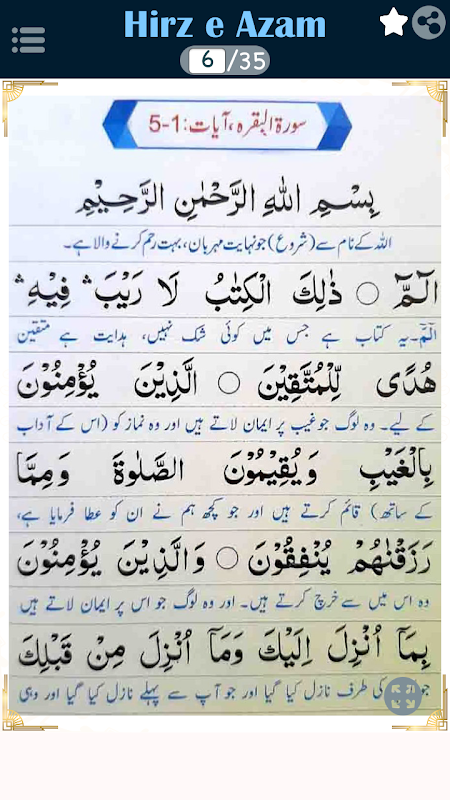 Hirz e Azam
6/35
سورۃ البقرہ، آیات: 1-5
بِسْمِ اللّٰهِ الرَّحْمٰنِ الرَّحِیْمِ
اللہ کے نام سے (شروع) جو نہایت مہربان، بہت رحم کرنے والا ہے۔
الٓمّٓ ○ ذٰلِكَ الْكِتٰبُ لَا رَیْبَ ۛ فِیْهِ ۛ
الٓمّٓ۔ یہ کتاب ہے جس میں کوئی شک نہیں، ہدایت ہے متقین
هُدًی لِّلْمُتَّقِیْنَ ○ الَّذِیْنَ یُؤْمِنُوْنَ
کے لیے۔ وہ لوگ جو غیب پر ایمان لاتے ہیں اور وہ نماز کو (اس کے آداب
بِالْغَیْبِ وَیُقِیْمُوْنَ الصَّلٰوةَ وَمِمَّا
کے ساتھ) قائم کرتے ہیں اور جو کچھ ہم نے ان کو عطا فرمایا ہے،
رَزَقْنٰهُمْ یُنْفِقُوْنَ ○ وَالَّذِیْنَ یُؤْمِنُوْنَ
وہ اس میں سے خرچ کرتے ہیں۔ اور وہ لوگ جو اس پر ایمان لاتے ہیں
بِمَاۤ اُنْزِلَ اِلَیْكَ وَمَاۤ اُنْزِلَ مِنْ قَبْلِكَ
جو کی طرف نازل کیا گیا اور جو آپ سے پہلے نازل کیا گیا اور وہی